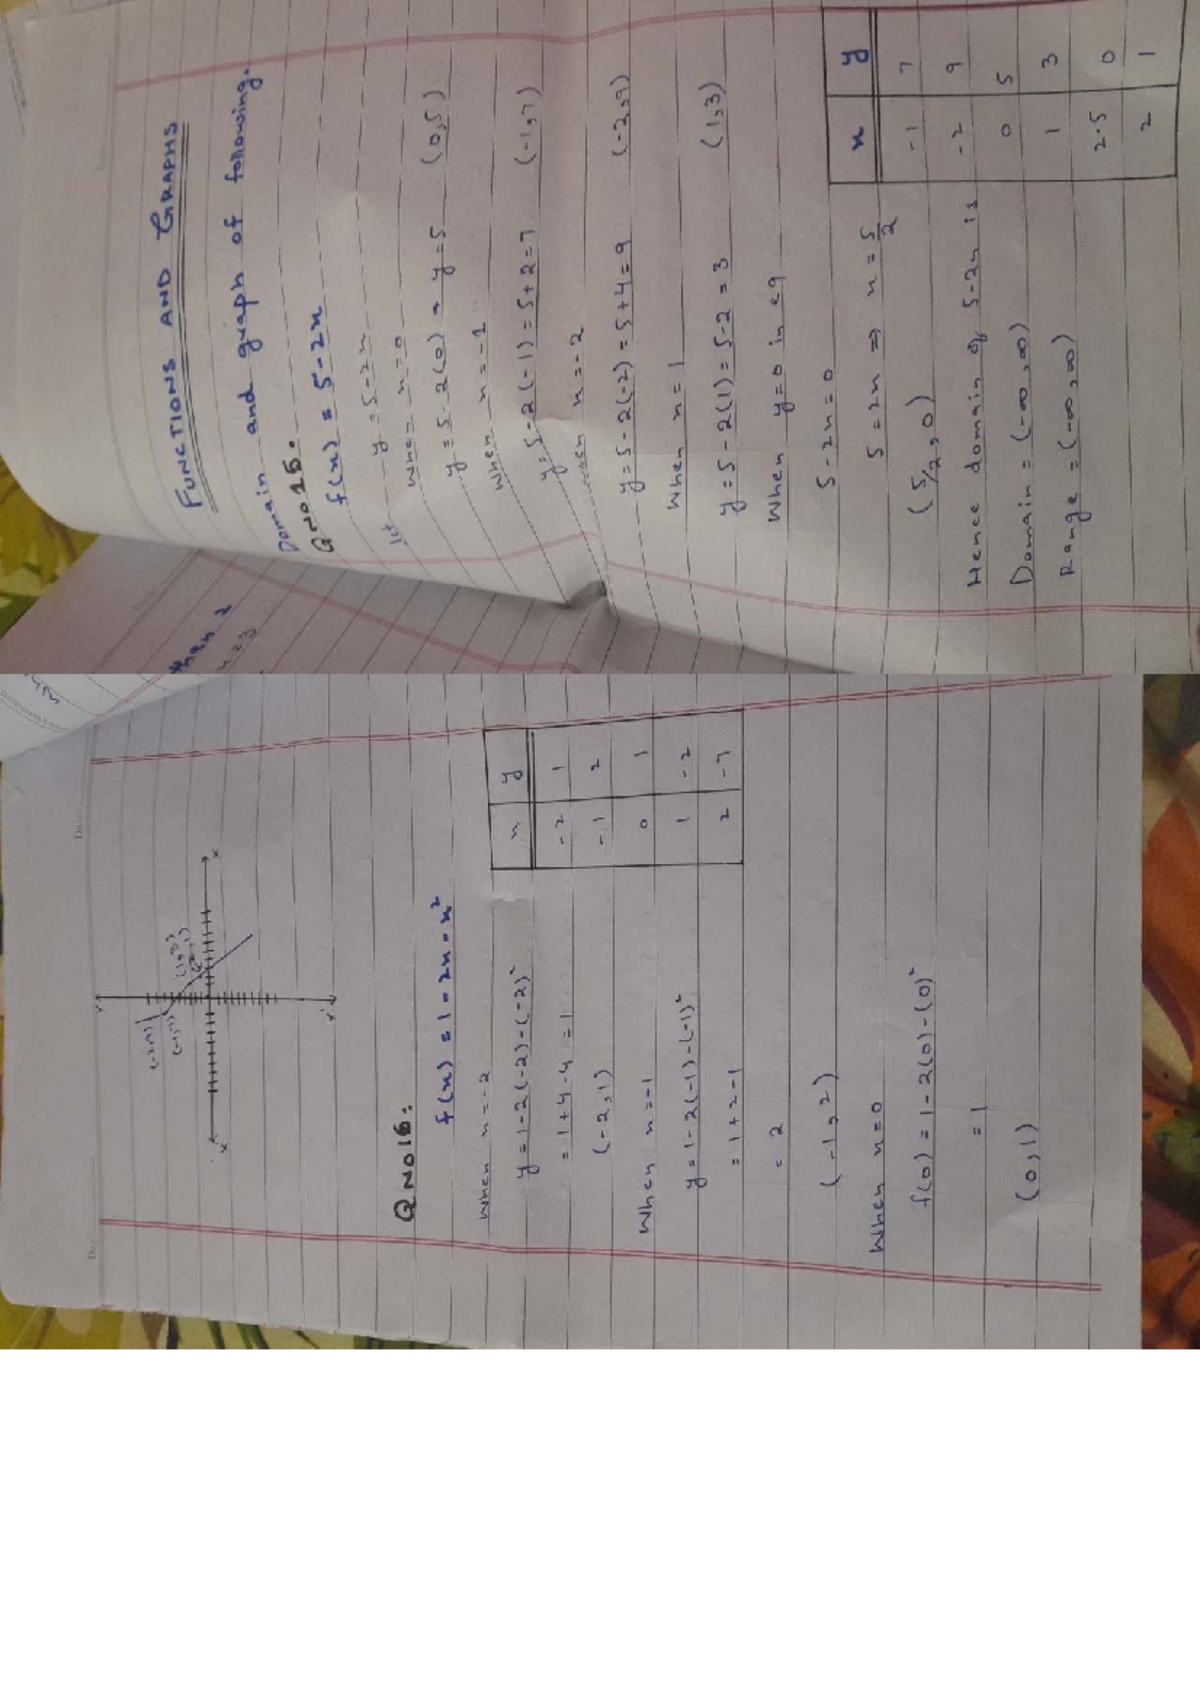 FUNCTIONS AND GRAPHS
Domain and graph of following.
Q no 15.
f(x) = 5-2x
let y = 5-2x
When x=0
y = 5-2(0) → y=5 (0,5)
When x=-1
y = 5-2(-1) = 5+2=7 (-1,7)
when x=-2
y=5-2(-2)=5+4=9 (-2,9)
When x=1
y=5-2(1)=5-2=3 (1,3)
When y=0 in eq
5-2x=0
5=2x ⇒ x=5/2
(5/2,0)
Hence domain of 5-2x is
Domain = (-∞,∞)
Range = (-∞,∞)
x y
-1 7
-2 9
0 5
1 3
2.5 0
2 1
than 2
(-2,9)
(-1,7)
(1,3)
(2,1)
Q NO 16:
f(x) = 1-2x-x²
When x=-2
y=1-2(-2)-(-2)²
=1+4-4=1
(-2,1)
When x=-1
y=1-2(-1)-(-1)²
=1+2-1
=2
(-1,2)
When x=0
f(0)=1-2(0)-(0)²
=1
(0,1)
x y
-2 1
-1 2
0 1
1 -2
2 -7